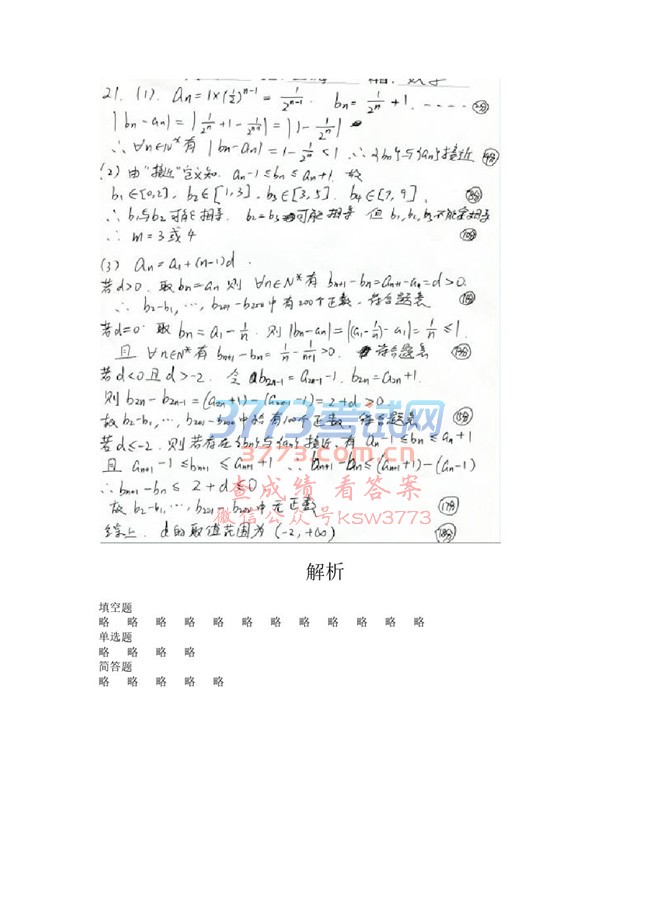 21. (1). aₙ = 1×(1/2)ⁿ⁻¹ = 1/2ⁿ⁻¹. bₙ = 1/2ⁿ + 1.
|bₙ - aₙ| = |1/2ⁿ + 1 - 1/2ⁿ⁻¹| = |1 - 1/2ⁿ|
∴ ∀n∈N* 有 |bₙ - aₙ| = 1 - 1/2ⁿ < 1 ∴ {bₙ}与{aₙ}接近
(2) 由"接近"定义知. aₙ-1 ≤ bₙ ≤ aₙ+1. 故
b₁∈[0,2], b₂∈[1,3], b₃∈[3,5], b₄∈[7,9],
∴ b₁与b₂可能相等. b₂=b₃可能相等 但 b₁,b₂,b₃不能全相等
∴ m = 3 或 4
(3) aₙ = a₁ + (n-1)d.
若d>0. 取bₙ=aₙ 则 ∀n∈N* 有 bₙ₊₁ - bₙ = aₙ₊₁ - aₙ = d > 0.
∴ b₂-b₁, …, b₂₀₁ - b₂₀₀ 中有200个正数. 符合题意
若d=0. 取 bₙ = a₁ - 1/n. 则 |bₙ - aₙ| = |(a₁ - 1/n) - a₁| = 1/n ≤ 1.
且 ∀n∈N* 有 bₙ₊₁ - bₙ = 1/n - 1/(n+1) > 0. 符合题意
若d<0 且 d>-2. 令 b₂ₙ₋₁ = a₂ₙ₋₁ - 1. b₂ₙ = a₂ₙ + 1.
则 b₂ₙ - b₂ₙ₋₁ = (a₂ₙ+1) - (a₂ₙ₋₁-1) = 2+d > 0
故 b₂-b₁, …, b₂₀₁ - b₂₀₀ 中恰有100个正数. 符合题意
3773考试网
若d≤-2. 则若存在{bₙ}与{aₙ}接近. 有 aₙ-1 ≤ bₙ ≤ aₙ+1
3773.com.cn
且 aₙ₊₁ - 1 ≤ bₙ₊₁ ≤ aₙ₊₁ + 1 ∴ bₙ₊₁ - bₙ ≤ (aₙ₊₁+1) - (aₙ-1)
∴ bₙ₊₁ - bₙ ≤ 2+d ≤ 0
查成绩 看答案
故 b₂-b₁, …, b₂₀₁ - b₂₀₀ 中无正数
微信公众号ksw3773
综上. d的取值范围为 (-2, +∞)
解析
填空题
略 略 略 略 略 略 略 略 略 略 略 略
单选题
略 略 略 略
简答题
略 略 略 略 略